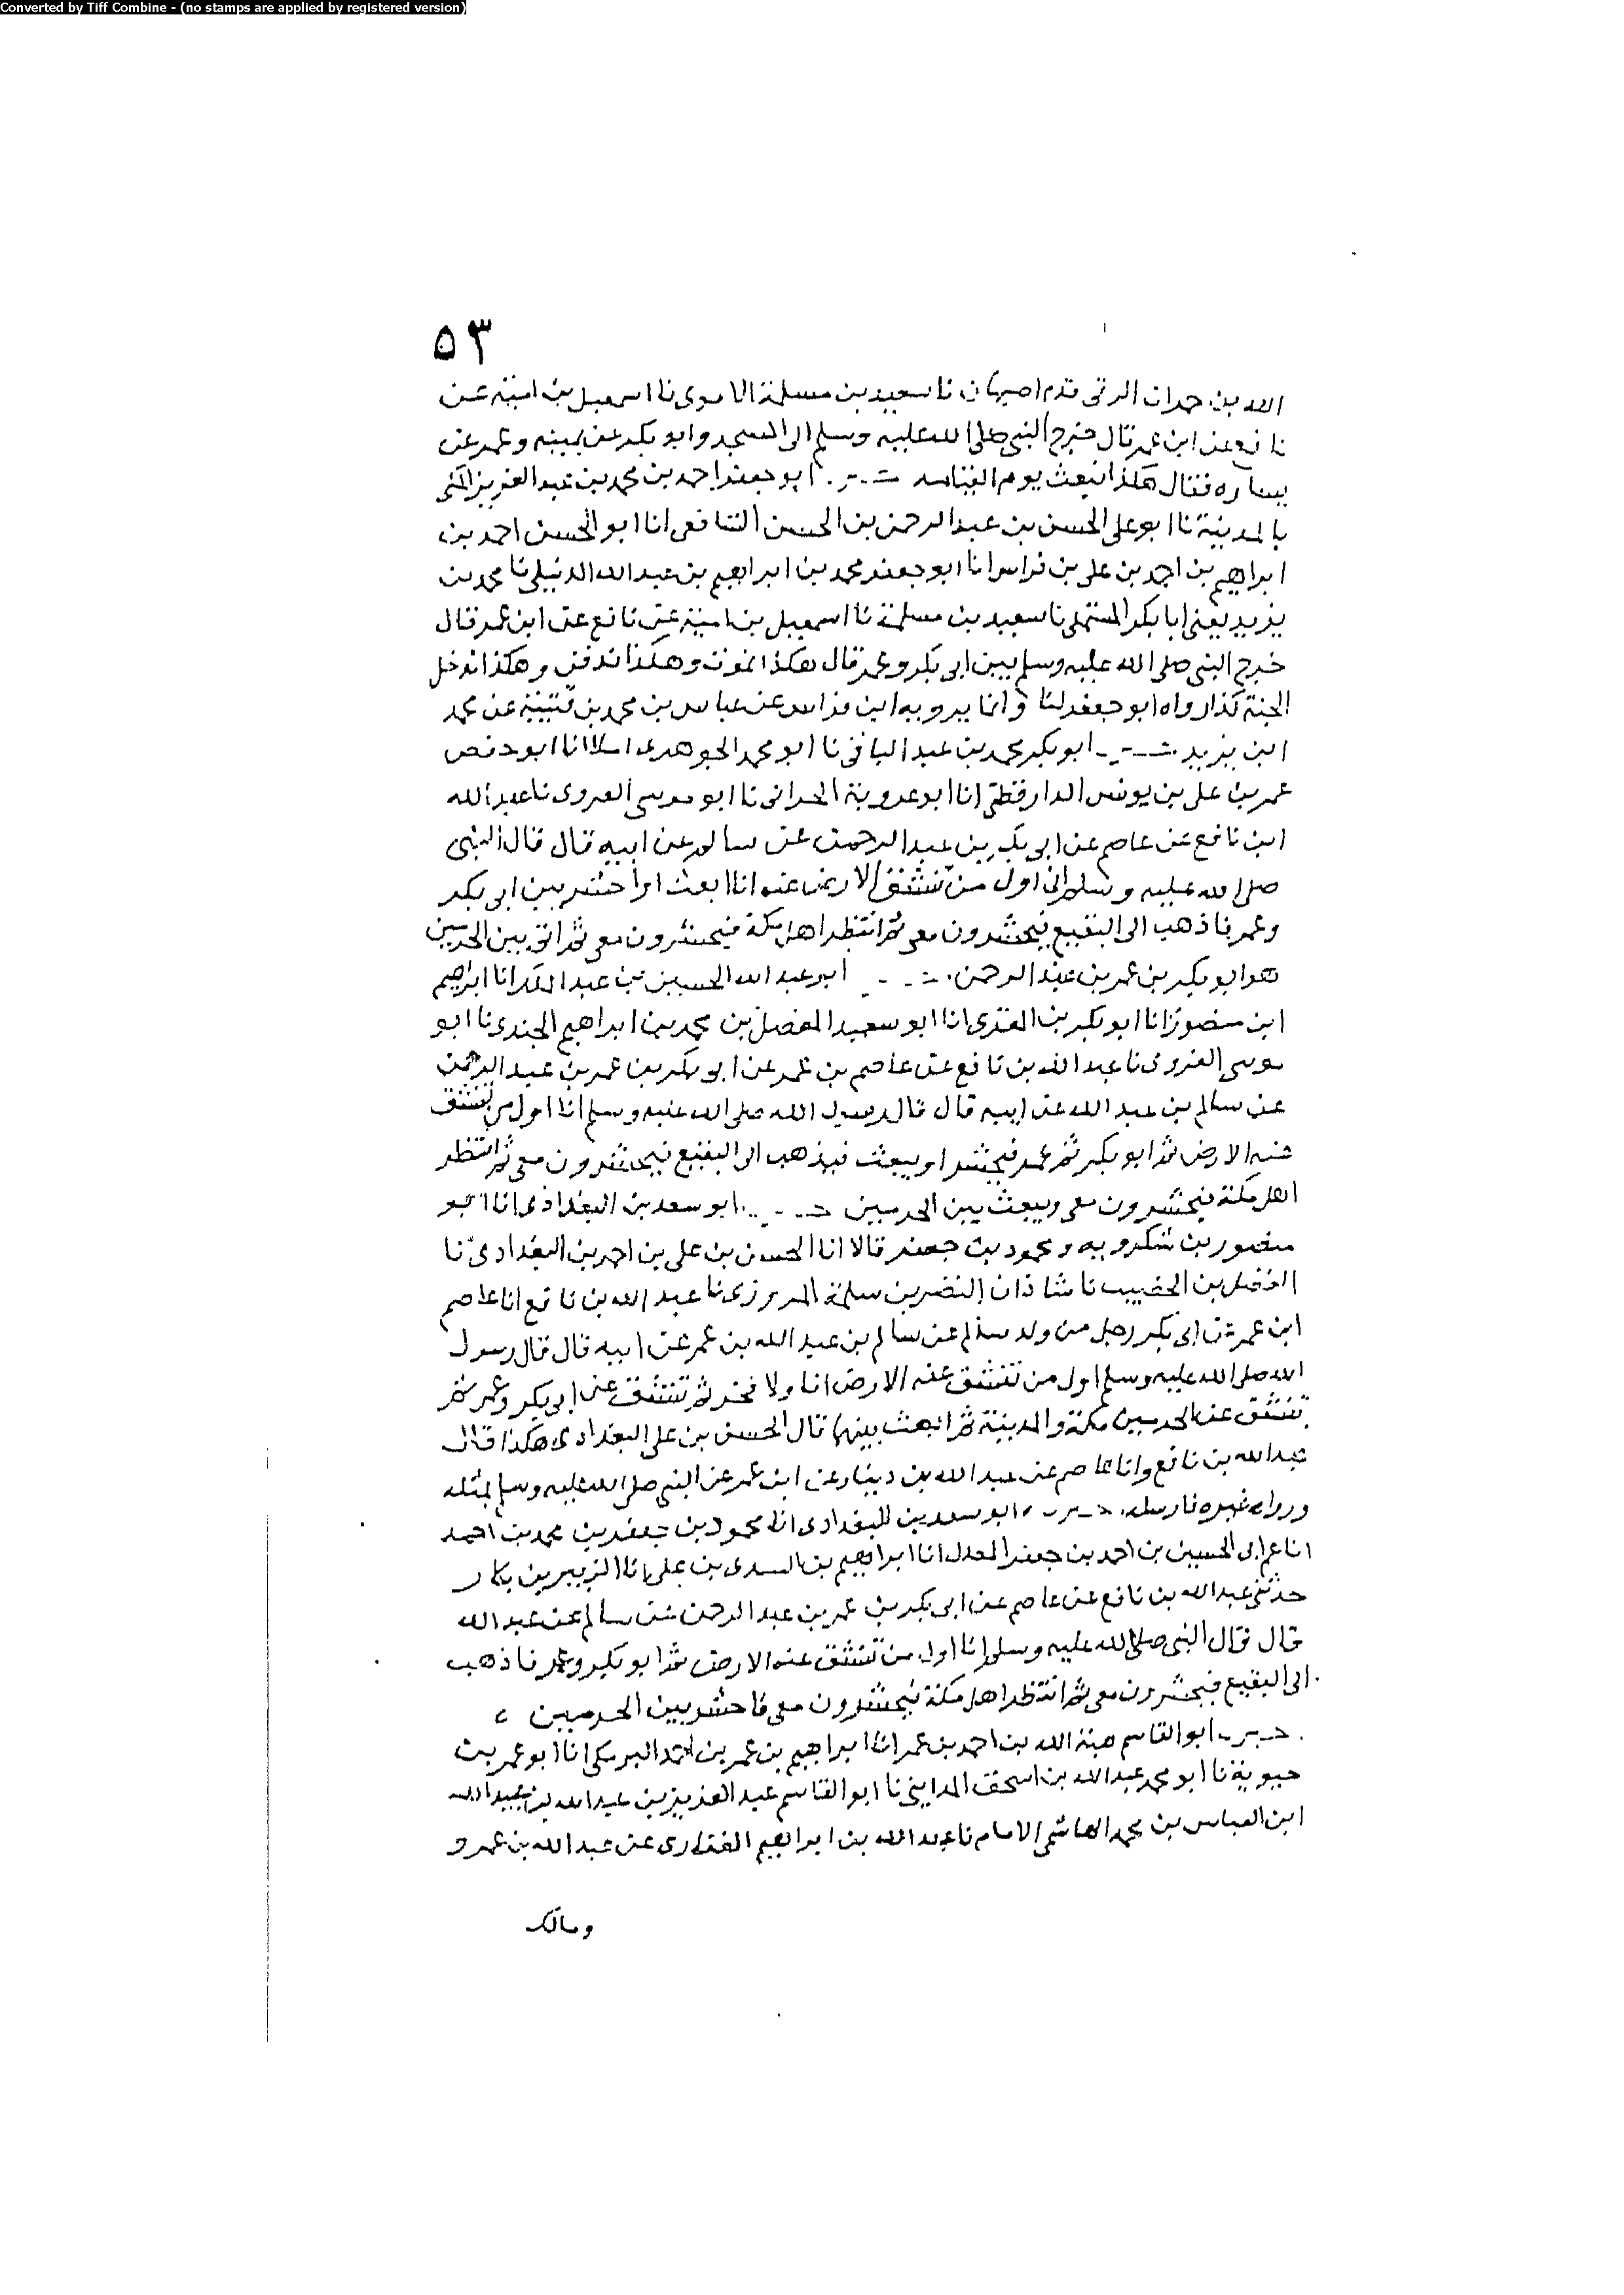 Converted by Tiff Combine - (no stamps are applied by registered version)
٥٣
الله بن حمدان الرقى قدم اصبهان نا سعيد بن مسلمة الاموى نا اسمعيل بن امية عن
نافع عن ابن عمر قال خرج النبى صلى الله عليه وسلم الى المسجد وابو بكر عن يمينه وعمر عن
يساره فقال هكذا نبعث يوم القيامه ابو جعفر احمد بن محمد بن عبد العزيز المكى
بالمدينة نا ابو على الحسن بن عبد الرحمن بن الحسن الشافعى انا ابو الحسن احمد بن
ابراهيم بن احمد بن على بن فراس انا ابو جعفر محمد بن ابراهيم بن عبد الله الديبلى نا محمد بن
يزيد يعنى ابا بكر المستملى نا سعيد بن مسلمة نا اسمعيل بن امية عن نافع عن ابن عمر قال
خرج النبى صلى الله عليه وسلم بين ابى بكر وعمر قال هكذا نموت وهكذا ندفن وهكذا ندخل
الجنة كذا رواه ابو جعفر لنا وانما يرويه ابن فراس عن عباس بن محمد بن قتيبة عن محمد
ابن يزيد ابو بكر محمد بن عبد الباقى نا ابو محمد الجوهرى املا انا ابو حفص
عمر بن على بن يونس الدارقطنى انا ابو عروبة الحرانى نا ابو موسى الفروى نا عبد الله
ابن نافع عن عاصم عن ابى بكر بن عبد الرحمن عن سالم عن ابيه قال قال النبى
صلى الله عليه وسلم انى اول من تنشق الارض عنه انا ابعث او احشر بين ابى بكر
وعمر فاذهب الى البقيع فيحشرون معى ثم انتظر اهل مكة فيحشرون معى ثم اتى بين الحرمين
هو ابو بكر بن عمر بن عبد الرحمن ابو عبد الله الحسين بن عبد الملك انا ابراهيم
ابن منصور انا ابو بكر بن المقرى انا ابو سعيد المفضل بن محمد بن ابراهيم الجندى نا ابو
موسى الفروى نا عبد الله بن نافع عن عاصم بن عمر عن ابى بكر بن عمر بن عبد الرحمن
عن سالم بن عبد الله عن ابيه قال قال رسول الله صلى الله عليه وسلم انا اول من تنشق
عنه الارض ثم ابو بكر ثم عمر فيحشر او يبعث فيذهب الى البقيع فيحشرون معى ثم انتظر
اهل مكة فيحشرون معى ويبعث بين الحرمين ابو سعد بن البغدادى انا ابو
منصور بن شكرويه ومحمود بن جعفر قالا انا الحسن بن على بن احمد بن البغدادى نا
الفضل بن الخصيب نا شاذان النضر بن سلمة المروزى نا عبد الله بن نافع انا عاصم
ابن عمر بن ابى بكر رجل من ولد سالم عن سالم بن عبد الله بن عمر عن ابيه قال قال رسول
الله صلى الله عليه وسلم اول من تنشق عنه الارض انا ولا فخر ثم تنشق عن ابى بكر وعمر ثم
تنشق عن الحرمين مكة والمدينة ثم ابعث بينهما قال الحسن بن على البغدادى هكذا قال
عبد الله بن نافع وانا عاصم عن عبد الله بن دينار عن ابن عمر عن النبى صلى الله عليه وسلم بمثله
ورواه غيره فارسله ابو سعد بن البغدادى انا محمود بن جعفر بن محمد بن احمد
انا عم ابى الحسين بن احمد بن جعفر المعدل انا ابراهيم بن السدى بن على انا الزبير بن بكار
حدثنى عبد الله بن نافع عن عاصم عن ابى بكر بن عمر بن عبد الرحمن عن سالم عن عبد الله
قال قال النبى صلى الله عليه وسلم انا اول من تنشق عنه الارض ثم ابو بكر وعمر فاذهب
الى البقيع فيحشرون معى ثم انتظر اهل مكة فيحشرون معى فاحشر بين الحرمين
ابو القاسم هبة الله بن احمد بن عمر انا ابراهيم بن عمر بن احمد البرمكى انا ابو عمر بن
حيوية نا ابو محمد عبد الله بن اسحق المداينى نا ابو القاسم عبد العزيز بن عبد الله بن عبيد الله
ابن العباس بن محمد الهاشمى الامام نا عبد الله بن ابراهيم الغفارى عن عبد الله بن عمرو
ومالك